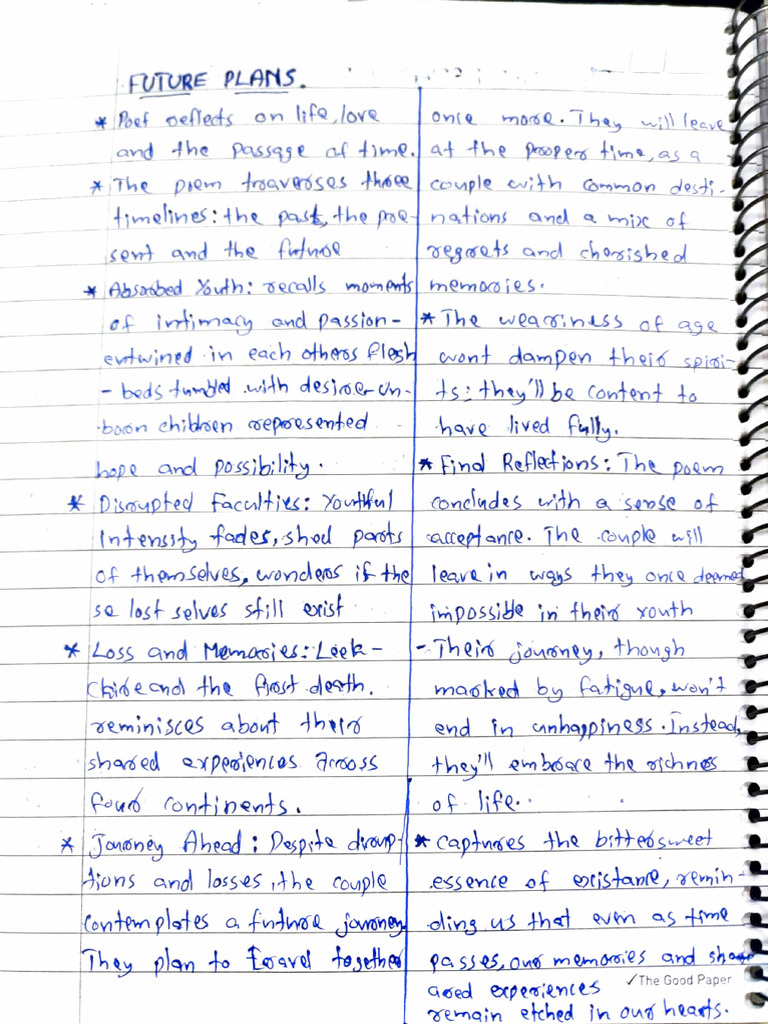 FUTURE PLANS.
* Poet reflects on life, love
and the passage of time.
* The poem traverses three
timelines: the past, the pre-
sent and the future
* Absorbed Youth: recalls moments
of intimacy and passion-
entwined in each others flesh
- beds tumbled with desire-un-
born children represented
hope and possibility.
* Disrupted Faculties: Youthful
Intensity fades, shed parts
of themselves, wonders if the
se lost selves still exist
* Loss and Memories: Leek-
and the first death.
reminisces about their
shared experiences across
four continents.
* Journey Ahead: Despite disrup-
tions and losses, the couple
contemplates a future journey
They plan to travel together
once more. They will leave
at the proper time, as a
couple with common desti-
nations and a mix of
regrets and cherished
memories.
* The weariness of age
wont dampen their spiri-
ts: they'll be content to
have lived fully.
* Final Reflections: The poem
concludes with a sense of
acceptance. The couple will
leave in ways they once deemed
impossible in their youth
- Their journey, though
marked by fatigue, won't
end in unhappiness. Instead,
they'll embrace the richnes
of life.
* captures the bittersweet
essence of existance, remin-
ding us that even as time
passes, our memories and sha
ared experiences
remain etched in our hearts.
✓The Good Paper